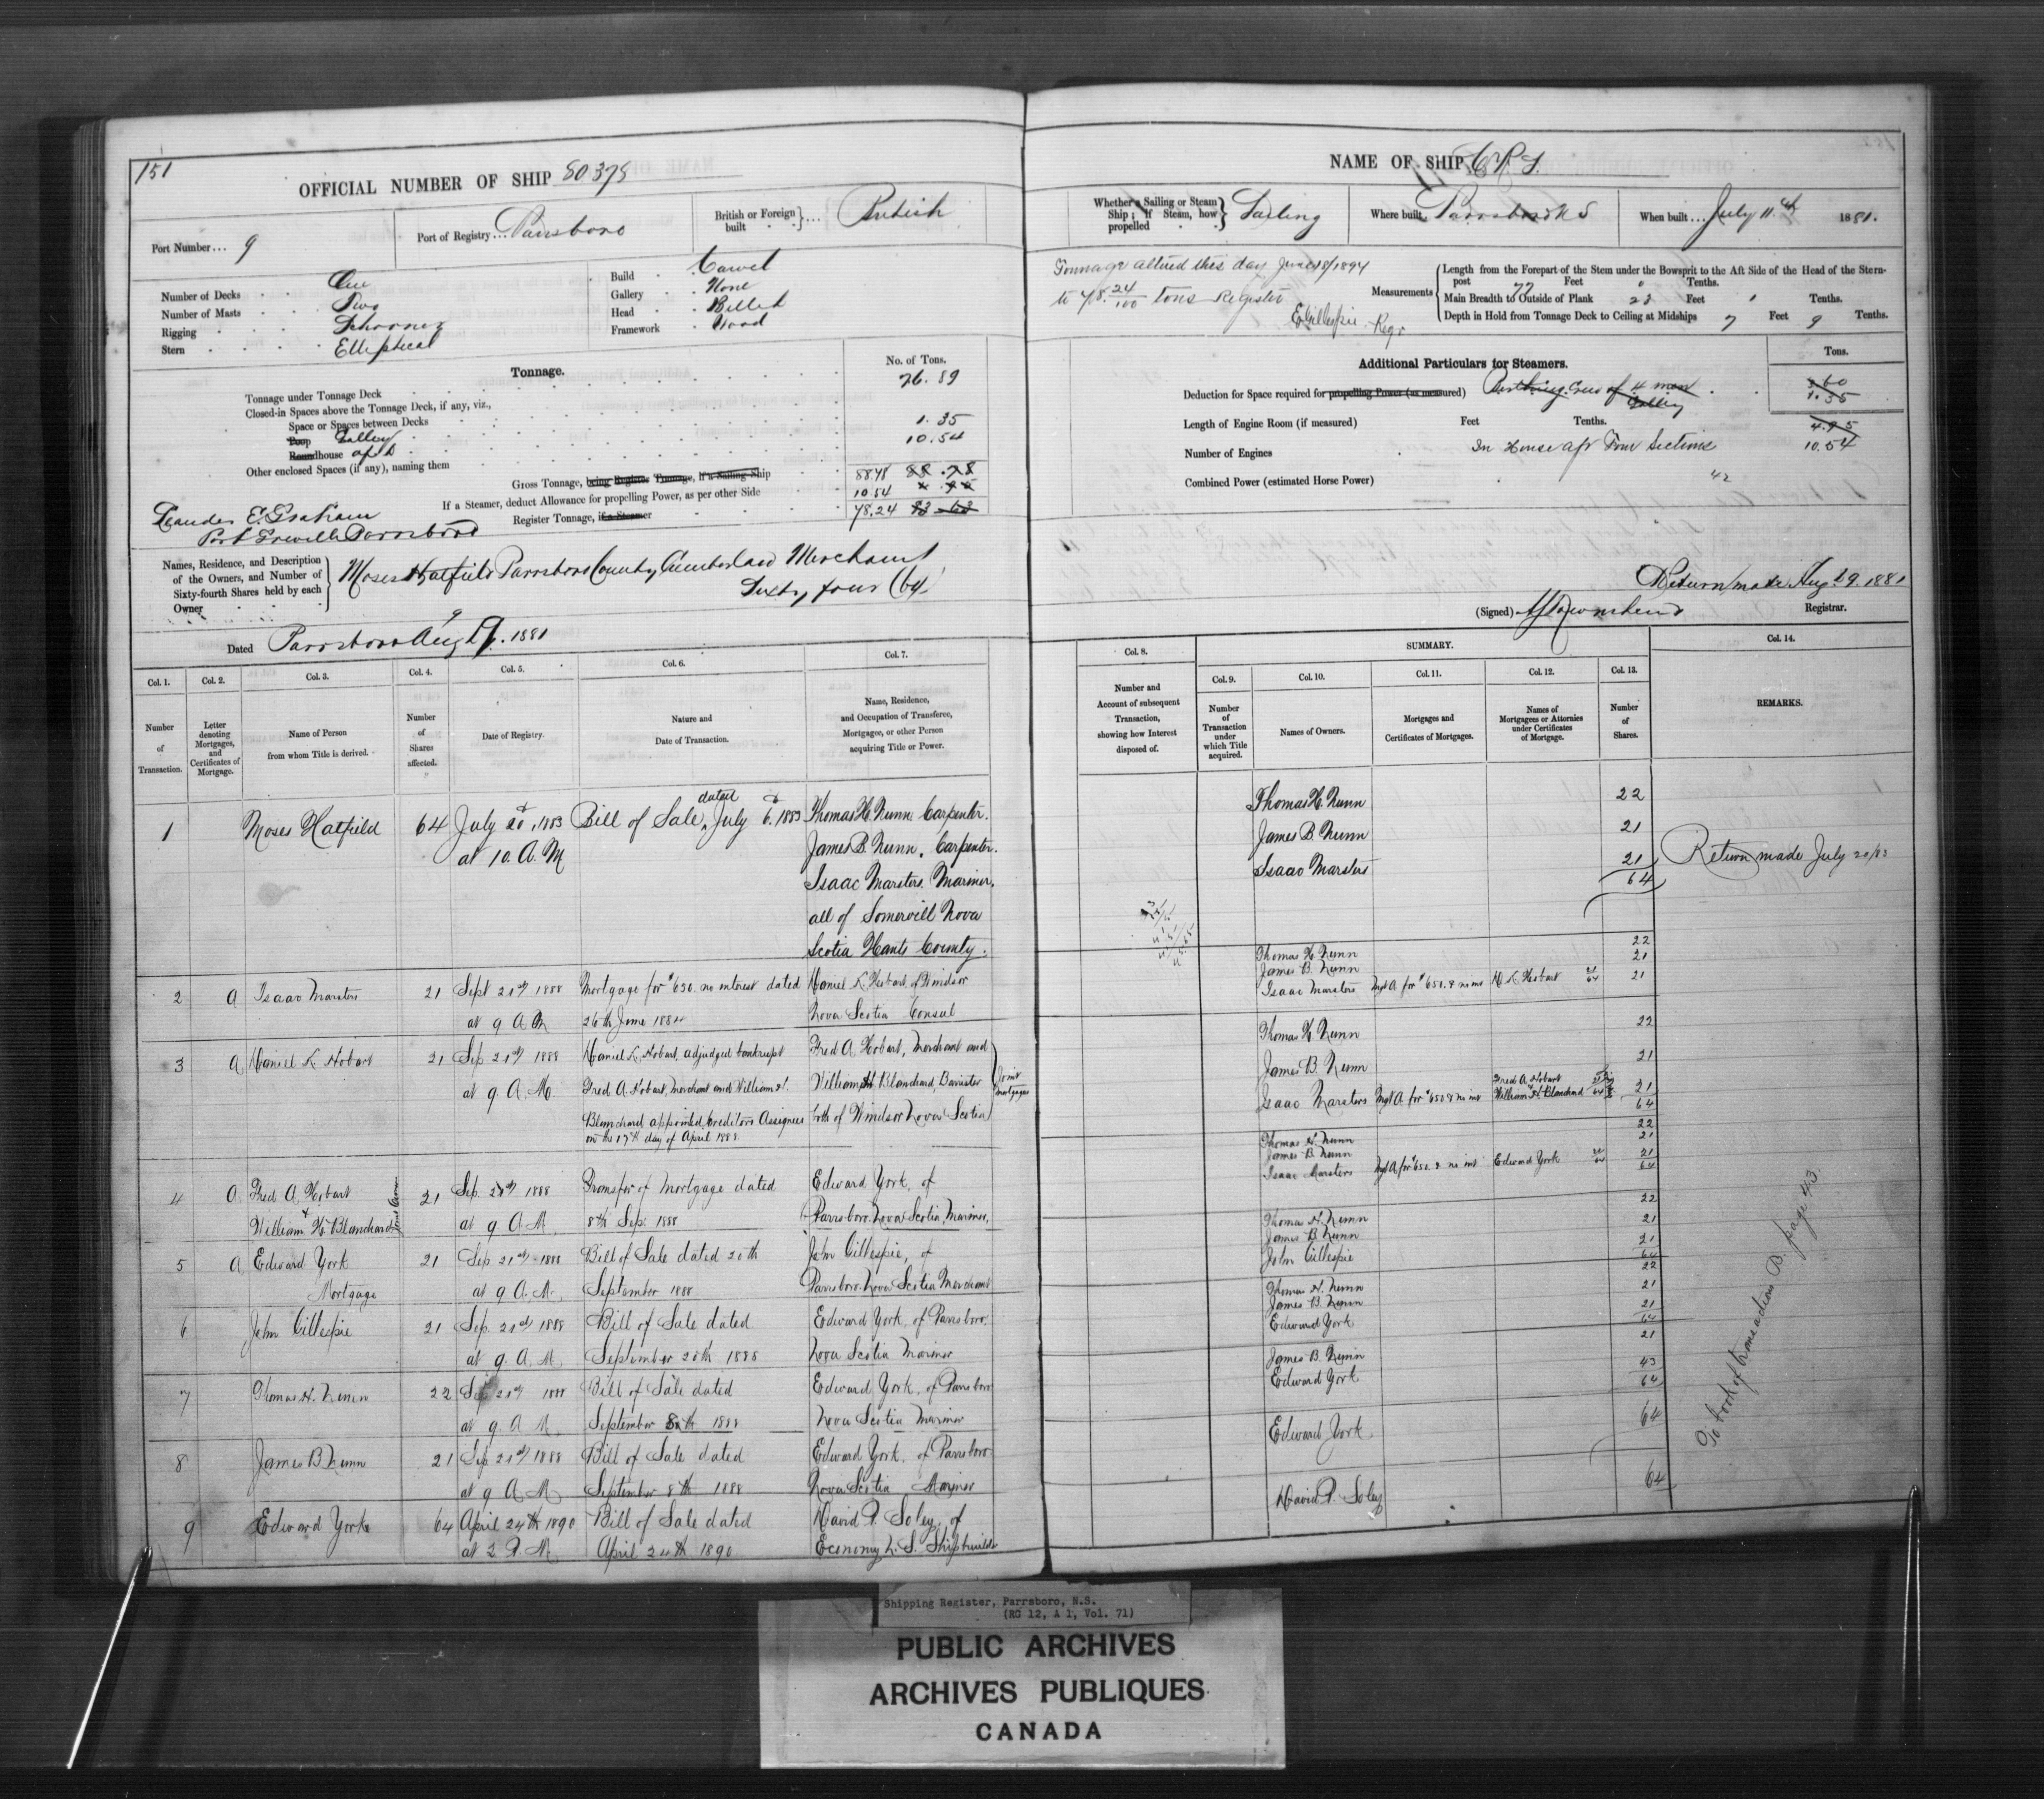 151
OFFICIAL NUMBER OF SHIP 80378
Port Number... 9
Port of Registry... Parrsboro
British or Foreign built ... British
Number of Decks One
Number of Masts Two
Rigging Schooner
Stern Elliptical
Build Carvel
Gallery None
Head Billet
Framework Wood
Tonnage.
No. of Tons.
Tonnage under Tonnage Deck 76.89
Closed-in Spaces above the Tonnage Deck, if any, viz.,
Space or Spaces between Decks
Poop Galley 1.35
Roundhouse aft 10.54
Other enclosed Spaces (if any), naming them
Gross Tonnage, being Register Tonnage, if a Sailing Ship 88.78
If a Steamer, deduct Allowance for propelling Power, as per other Side 10.54
Register Tonnage, if a Steamer 78.24
Leander E. Graham
Port Greville Parrsboro
Names, Residence, and Description of the Owners, and Number of Sixty-fourth Shares held by each Owner
Moses Hatfield Parrsboro County Cumberland Merchant
Sixty four (64)
Dated Parrsboro Aug 9. 1881
Col. 1. Col. 2. Col. 3. Col. 4. Col. 5. Col. 6. Col. 7.
Number of Transaction.
Letter denoting Mortgages, and Certificates of Mortgage.
Name of Person from whom Title is derived.
Number of Shares affected.
Date of Registry.
Nature and Date of Transaction.
Name, Residence, and Occupation of Transferee, Mortgagee, or other Person acquiring Title or Power.
1 Moses Hatfield 64 July 20d, 1883 Bill of Sale, dated July 6d. 1883 Thomas H. Nunn Carpenter.
at 10. A. M James B. Nunn, Carpenter.
Isaac Marsters. Mariner,
all of Somervill Nova
Scotia Hants County.
2 A Isaac Marsters 21 Sept 21st 1888 Mortgage for $650. no interest dated Daniel K. Hobart, of Windsor
at 9 A M 26th June Nova Scotia Consul
3 A Daniel K Hobart 21 Sep 21st 1888 Daniel K. Hobart, adjudged bankrupt Fred A Hobart, Merchant and
at 9. A. M. Fred A. Hobart, Merchant and William H. William H. Blanchard, Barrister
Blanchard appointed Creditors Assignees both of Windsor Nova Scotia
on the 17th day of April 1888.
Joint Mortgagees
4 A Fred A Hobart 21 Sep. 21st 1888 Transfer of Mortgage dated Edward York, of
& William H Blanchard at 9 A. M. 8th Sep. 1888 Parrsboro Nova Scotia, Mariner,
5 A Edward York 21 Sep 21st 1888 Bill of Sale dated 20th John Gillespie, of
Mortgage at 9 A. M. September 1888 Parrsboro Nova Scotia Merchant
6 John Gillespie 21 Sep. 21st 1888 Bill of Sale dated Edward York, of Parrsboro.
at 9. A. M. September 20th 1888 Nova Scotia Mariner
7 Thomas H. Nunn 22 Sep 21st 1888 Bill of Sale dated Edward York, of Parrsboro
at 9 A M. September 8th 1888 Nova Scotia Mariner
8 James B Nunn 21 Sep 21st 1888 Bill of Sale dated Edward York, of Parrsboro
at 9 A M September 8th 1888 Nova Scotia Mariner
9 Edward York 64 April 24th 1890 Bill of Sale dated David P. Soley, of
at 2 P. M. April 24th 1890 Economy N. S. Shipbuilder
NAME OF SHIP
Whether a Sailing or Steam Ship; if Steam, how propelled Sailing
Where built Parrsboro N S
When built... July 11th 1881.
Tonnage altered this day June 18/1894
to 78. 24/100 tons Register
E Gillespie Regr
Measurements
Length from the Forepart of the Stem under the Bowsprit to the Aft Side of the Head of the Stern-post 77 Feet Tenths.
Main Breadth to Outside of Plank 23 Feet Tenths.
Depth in Hold from Tonnage Deck to Ceiling at Midships 7 Feet 9 Tenths.
Additional Particulars for Steamers.
Tons.
Deduction for Space required for propelling Power (as measured) Berthing Crew of 4 men 3.60
Galley 1.35
Length of Engine Room (if measured) Feet Tenths. 4.95
Number of Engines In House aft Four Sections 10.54
Combined Power (estimated Horse Power)
42
Return made Aug 29. 1881
(Signed) Townshend Registrar.
SUMMARY.
Col. 8. Col. 9. Col. 10. Col. 11. Col. 12. Col. 13. Col. 14.
Number and Account of subsequent Transaction, showing how Interest disposed of.
Number of Transaction under which Title acquired.
Names of Owners.
Mortgages and Certificates of Mortgages.
Names of Mortgagees or Attornies under Certificates of Mortgage.
Number of Shares.
REMARKS.
Thomas H. Nunn 22
James B. Nunn 21
Isaac Marsters 21
64
Return made July 20/83
Thomas H. Nunn 22
James B. Nunn 21
Isaac Marsters Mgt A for $650. & no int D K Hobart 21/64 21
Thomas H Nunn 22
James B. Nunn 21
Isaac Marsters Mgt A for $650 & no int Fred A Hobart William H. Blanchard 21/64 21
64
Thomas H. Nunn 22
James B Nunn 21
Isaac Marsters Mgt A for $650. & no int Edward York 21/64 21
64
Thomas H. Nunn 22
James B Nunn 21
John Gillespie 21
64
Thomas H. Nunn 22
James B. Nunn 21
Edward York 21
64
James B. Nunn 21
Edward York 43
64
Edward York 64
David P. Soley 64
To book of transactions B. page 43.
Shipping Register, Parrsboro, N.S.
(RG 12, A 1, Vol. 71)
PUBLIC ARCHIVES
ARCHIVES PUBLIQUES
CANADA